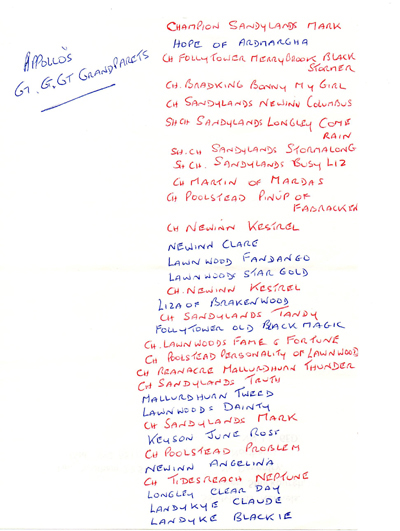 APPOLLO'S
GT. G. GT GRANDPARETS
CHAMPION SANDYLANDS MARK
HOPE OF ARDMARGHA
CH FOLLYTOWER MERRYBROOK BLACK
STORMER
CH. BRADKING BONNY MY GIRL
CH SANDYLANDS NEWINN COLUMBUS
SHCH SANDYLANDS LONGLEY COME
RAIN
SH.CH SANDYLANDS STORMALONG
SH CH. SANDYLANDS BUSY LIZ
CH MARTIN OF MARDAS
CH POOLSTEAD PINUP OF
FABRACKEN
CH NEWINN KESTREL
NEWINN CLARE
LAWNWOOD FANDANGO
LAWNWOODS STAR GOLD
CH. NEWINN KESTREL
LIZA OF BRAKENWOOD
CH SANDYLANDS TANDY
FOLLYTOWER OLD BLACK MAGIC
CH. LAWNWOODS FAME & FORTUNE
CH POOLSTEAD PERSONALITY OF LAWNWOOD
CH REANACRE MALLURDHURN THUNDER
CH SANDYLANDS TRUTH
MALLURDHURN TWEED
LAWNWOODS DAINTY
CH SANDYLANDS MARK
KEYSON JUNE ROSE
CH POOLSTEAD PROBLEM
NEWINN ANGELINA
CH TIDESREACH NEPTUNE
LONGLEY CLEAR DAY
LANDYKYE CLAUDE
LANDYKE BLACKIE